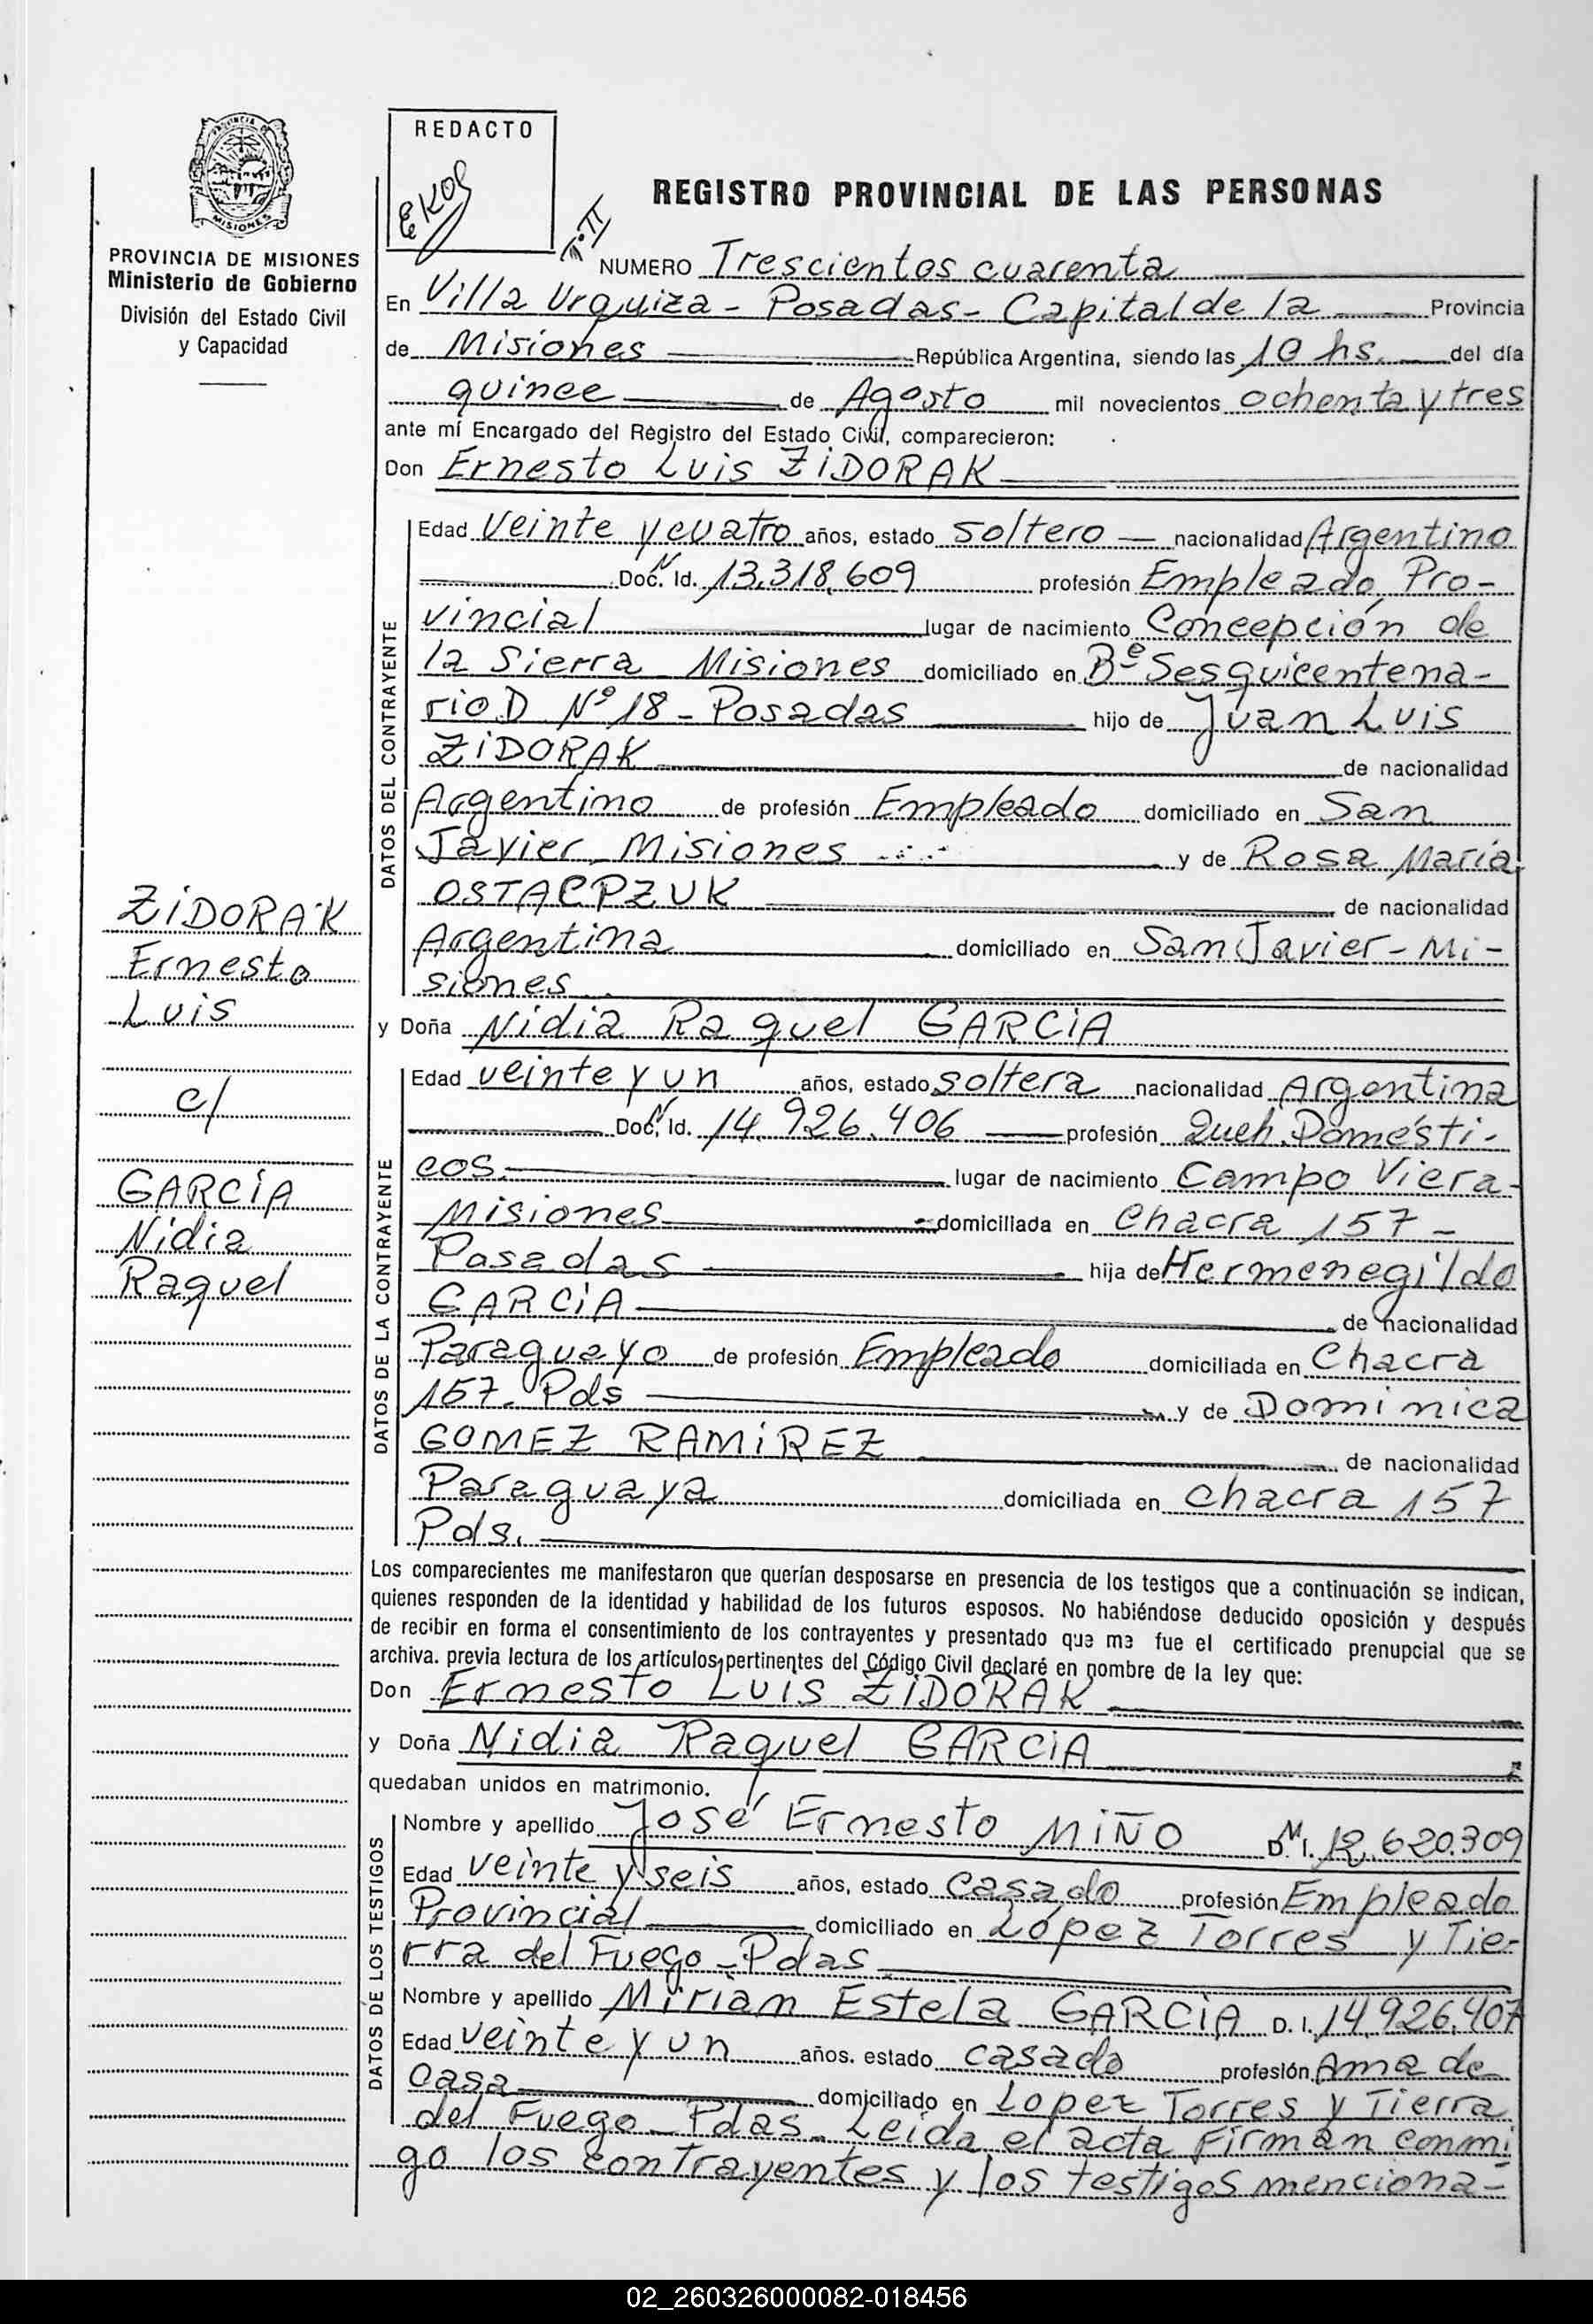 PROVINCIA DE MISIONES
MISIONES
PROVINCIA DE MISIONES
Ministerio de Gobierno
División del Estado Civil
y Capacidad
ZiDORAK
Ernesto
Luis
c/
GARCiA
Nidia
Raquel
REDACTO
REGISTRO PROVINCIAL DE LAS PERSONAS
NUMERO Trescientos cuarenta
En Villa Urquiza - Posadas - Capital de la Provincia
de Misiones República Argentina, siendo las 10 hs. del día
quince de Agosto mil novecientos ochenta y tres
ante mí Encargado del Registro del Estado Civil, comparecieron:
Don Ernesto Luis ZiDORAK
DATOS DEL CONTRAYENTE
Edad Veinte y cuatro años, estado soltero — nacionalidad Argentino
Doc. N Id. 13.318.609 profesión Empleado Pro-
vincial lugar de nacimiento Concepción de
la Sierra Misiones domiciliado en Bº Sesquicentena-
rio D Nº 18 - Posadas hijo de Juan Luis
ZiDORAK de nacionalidad
Argentino de profesión Empleado domiciliado en San
Javier Misiones y de Rosa María
OSTACPZUK de nacionalidad
Argentina domiciliado en San Javier - Mi-
siones
y Doña Nidia Raquel GARCiA
DATOS DE LA CONTRAYENTE
Edad veinte y un años, estado soltera nacionalidad Argentina
Doc. N Id. 14.926.406 profesión Queh. Domésti-
cos. lugar de nacimiento Campo Viera-
Misiones domiciliada en Chacra 157 -
Posadas hija de Hermenegildo
GARCiA de nacionalidad
Paraguayo de profesión Empleado domiciliada en Chacra
157. Pds y de Dominica
GOMEZ RAMiREZ de nacionalidad
Paraguaya domiciliada en chacra 157
Pds.
Los comparecientes me manifestaron que querían desposarse en presencia de los testigos que a continuación se indican,
quienes responden de la identidad y habilidad de los futuros esposos. No habiéndose deducido oposición y después
de recibir en forma el consentimiento de los contrayentes y presentado que me fue el certificado prenupcial que se
archiva. previa lectura de los artículos pertinentes del Código Civil declaré en nombre de la ley que:
Don Ernesto Luis ZiDORAK
y Doña Nidia Raquel GARCiA
quedaban unidos en matrimonio.
DATOS DE LOS TESTIGOS
Nombre y apellido José Ernesto MiÑO D.N.I. 12.620.309
Edad veinte y seis años, estado casado profesión Empleado
Provincial domiciliado en López Torres y Tie-
rra del Fuego - Pdas
Nombre y apellido Miriam Estela GARCiA D. I. 14.926.407
Edad veinte y un años. estado casado profesión Ama de
casa domiciliado en Lopez Torres y Tierra
del Fuego - Pdas. Leida el acta Firman conmi
go los contrayentes y los testigos menciona-
02_260326000082-018456